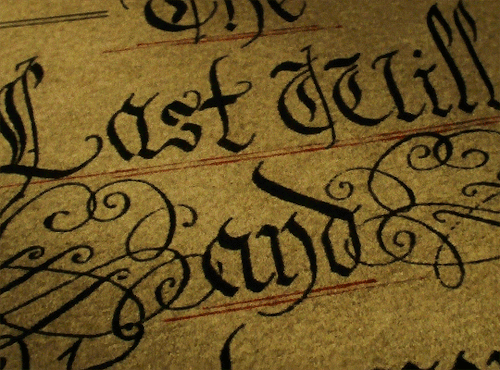 The
Last Will
and